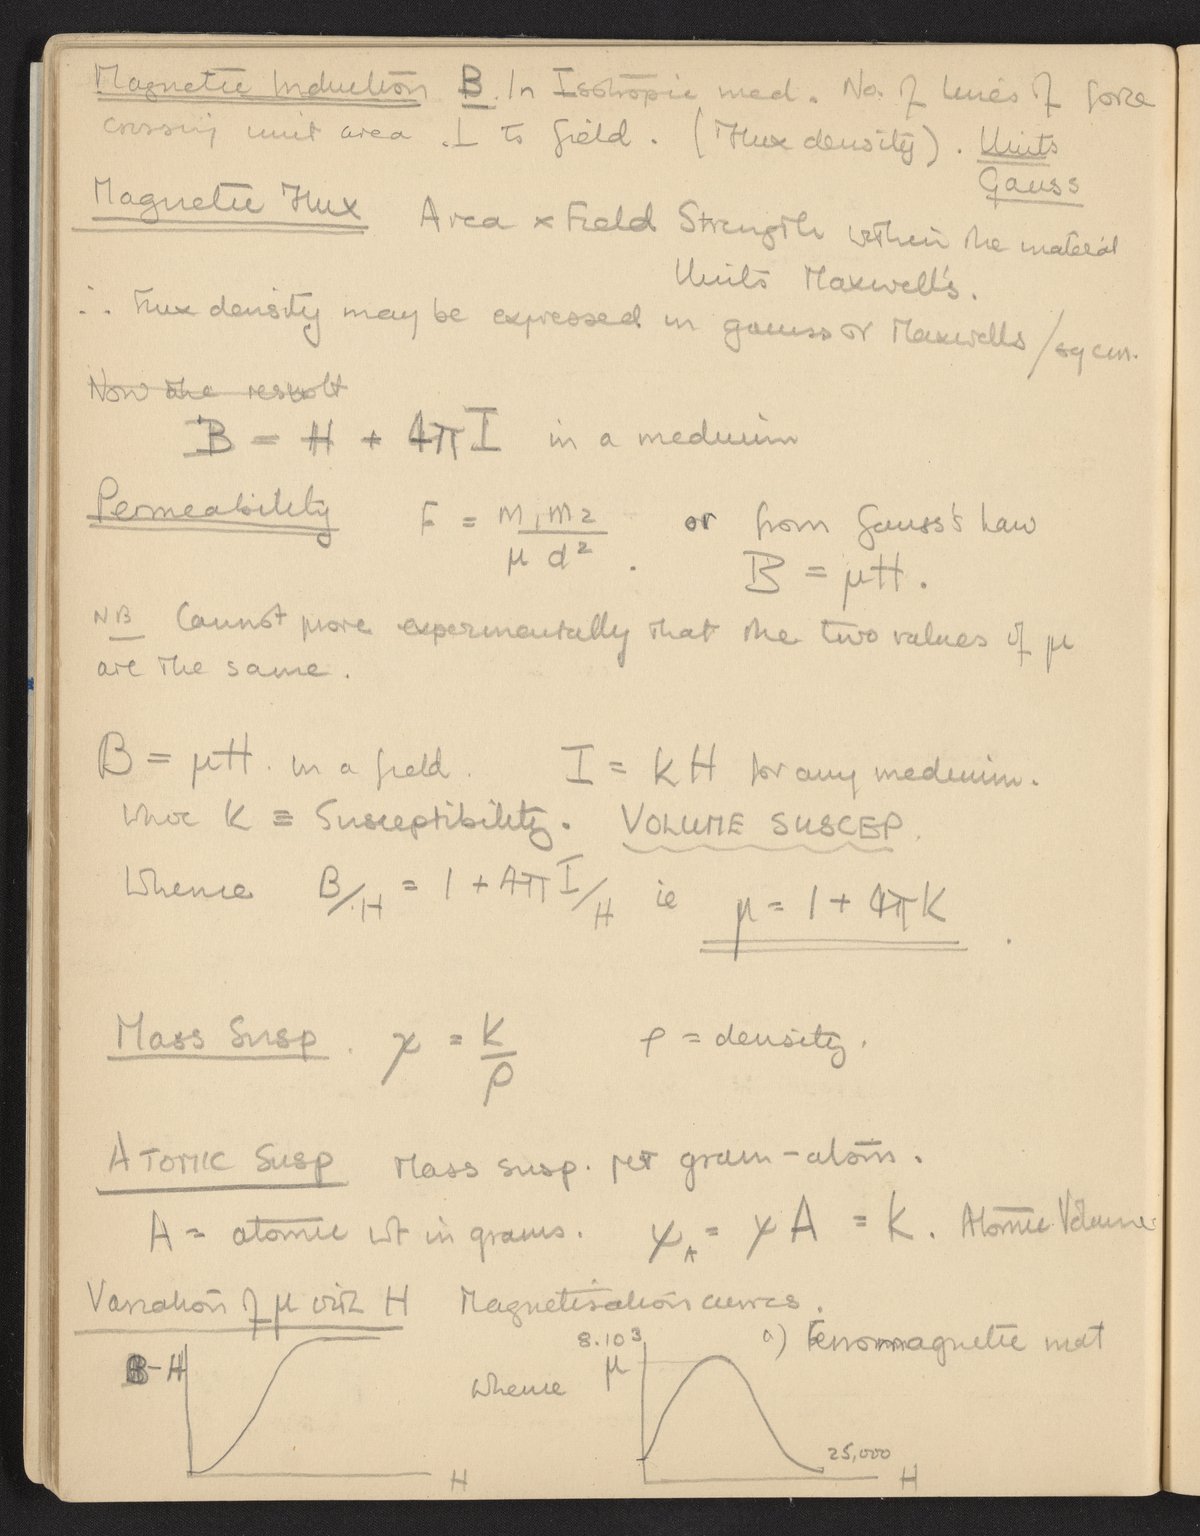 Magnetic Induction B. In Isotropic med. No. of lines of force
crossing unit area. ⊥ to field. (Flux density). Units
Gauss
Magnetic Flux Area × Field Strength within the material
Units Maxwell's.
∴ Flux density may be expressed in gauss or Maxwells / sq cm.
Now the result
B = H + 4πI in a medium
Permeability F = m₁m₂ / μ d² . or from Gauss's Law
B = μH.
NB Cannot prove experimentally that the two values of μ
are the same.
B = μH. in a field. I = KH for any medium.
where K ≡ Susceptibility. VOLUME SUSCEP.
Whence B/H = 1 + 4π I/H ie μ = 1 + 4πK .
Mass Susp. χ = K/ρ ρ = density.
ATOMIC Susp Mass susp. per gram-atom.
A = atomic wt in grams. χ_A = χA = K. Atomic Volume
Variation of μ with H Magnetisation curves.
a) Ferromagnetic mat
B-H H whence 8.10³ μ 25,000 H